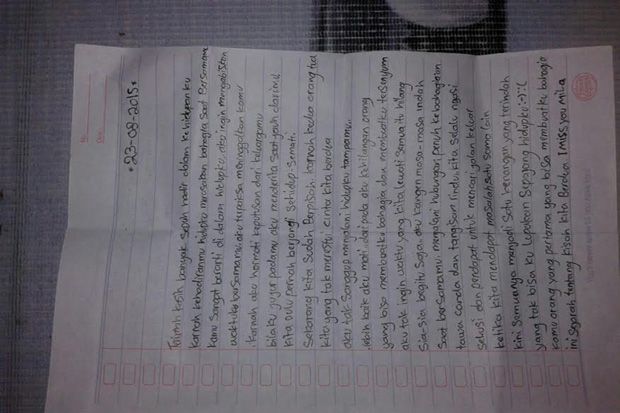 No:
Date:
• 23-08-2015 •
Trimah kasih banyak sayah hadir dalam kehidupan ku
karnah kehadiranmu hidupku merasakan bahagia saat bersamamu
kamu sangat berarti di dalam hidupku, aku ingin menghabiskan
waktuku bersamamu aku terpaksa meninggalkan kamu
karnah aku hormati keputusan dari keluargamu
bila ku jujur padamu aku menderita saat jauh darimu
kita dulu pernah berjanji sehidup-semati.
Sekarang kita sudah berpisah karnah kedua orang tua
kita yang tak merestui cinta kita berdua
aku tak sanggup menjalani hidupku tanpamu..
lebih baik aku mati dari pada aku kehilangan orang
yang bisa membuatku bahagia dan membuatku tersenyum
aku tak ingin waktu yang kita lewati semua itu hilang
sia-sia begitu saja. aku kangen masa-masa indah
saat bersamamu menjalani hubungan penuh kebahagiaan
tawa canda dan tangisan rindu. kita selalu ngasi
solusi dan pendapat untuk mencari jalan keluar
ketika kita mendapat masalah satu sama lain
kini semuanya menjadi satu kenangan yang terindah
yang tak bisa ku lupakan sepanjang hidupku :-) :-(
kamu orang yang pertama yang bisa membuatku bahagia
ini sejarah tentang kisah kita berdua I miss you Mila